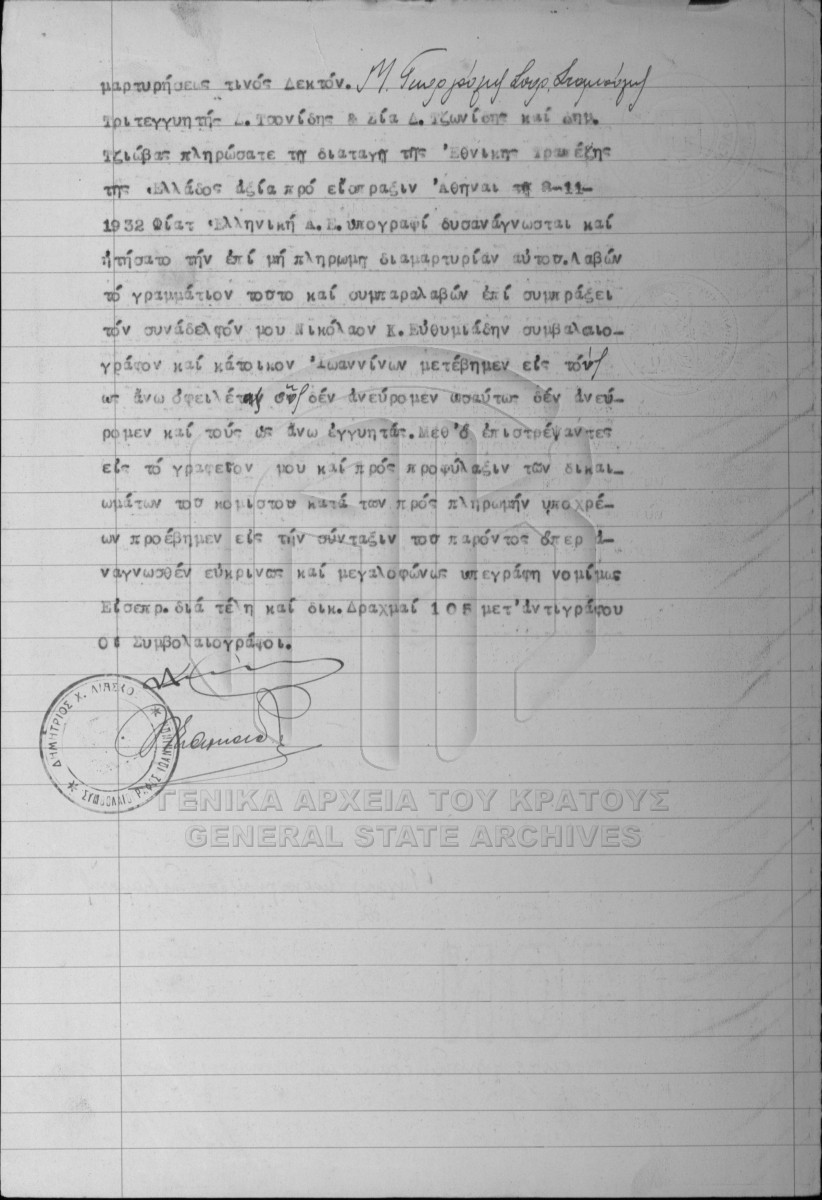 μαρτυρήσεως τινός Δεκτόν. Μ.
Τριτεγγυητής Δ. Τσονίδης & Σία Δ. Τζωνίδης καί Δημ.
Τζιώβας πληρώσατε τη διαταγη της Ἐθνικης Τραπέζης
της Ἑλλάδος ἀξία πρό εἴσπραξιν Ἀθηναι τη 8-11-
1932 Φίατ Ἑλληνική Α.Ε. υπογραφί δυσανάγνωσται καί
ἠτήσατο τήν ἐπί μή πληρωμη διαμαρτυρίαν αὐτοσ. Λαβών
τό γραμμάτιον τοστο καί συμπαραλαβών ἐπί συμπράξει
τόν συνάδελφόν μου Νικόλαον Κ. Εὐθυμιάδην συμβαλαιο-
γράφον καί κάτοικον Ἰωαννίνων μετέβημεν είς τόν
ως άνω ὀφειλέτην ὅν δέν ἀνεύρομεν ωσαύτως δέν ἀνεύ-
ρομεν καί τούς ως ἄνω ἐγγυητάς. Μεθ'ὅ ἐπιστρέψαντες
είς τό γραφετον μου καί πρός προφύλαξιν τῶν δικαι-
ωμάτων τοσ κομιστου κατά των πρός πληρωμήν υποχρέ-
ων προέβημεν είς τήν σύνταξιν τοσ παρόντος ὅπερ ἀ-
ναγνωσθέν εὐκρινως καί μεγαλοφώνως υπεγράφη νομίμως
Είσεπρ. διά τέλη καί δικ. Δραχμαί 105 μετ'ἀντιγράφου
Οι Συμβολαιογράφοι.
ΔΗΜΗΤΡΙΟΣ Χ. ΛΙΑΣΚΟ
ΓΕΝΙΚΑ ΑΡΧΕΙΑ ΤΟΥ ΚΡΑΤΟΥΣ
GENERAL STATE ARCHIVES